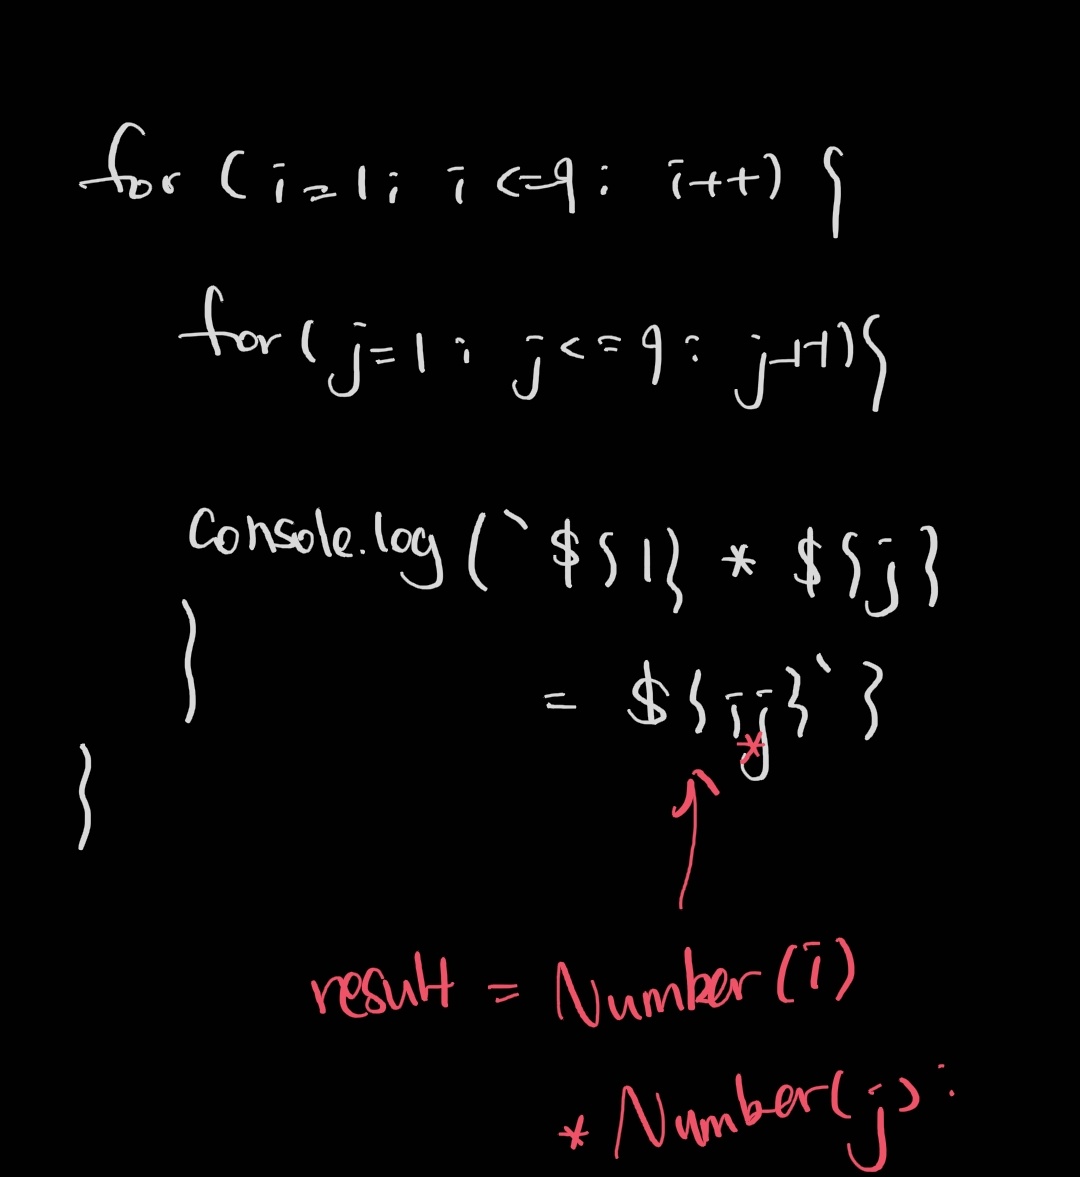 for (i=1; i<=9; i++) {
for (j=1; j<=9; j++) {
console.log(`${1} * ${j}
}
= ${i*j}`}
}
result = Number(i)
* Number(j);